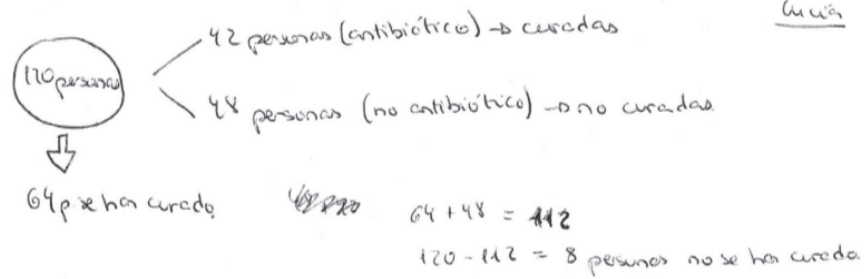 Lucía
42 personas (antibiótico) → curadas
120 personas
48 personas (no antibiótico) → no curadas
64p se han curado
64 + 48 = 112
120 - 112 = 8 personas no se han curado